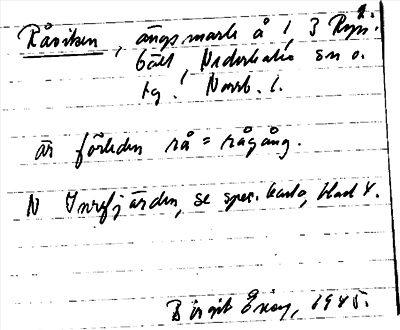 Råviken, ängsmark å 1, 3 Ryss-
bält, Nederkalix sn o.
tg. Norrb. l.
är förleden rå = rågång.
N Inrefjärden, se spec. karta, blad 4.
Birgit 1945.